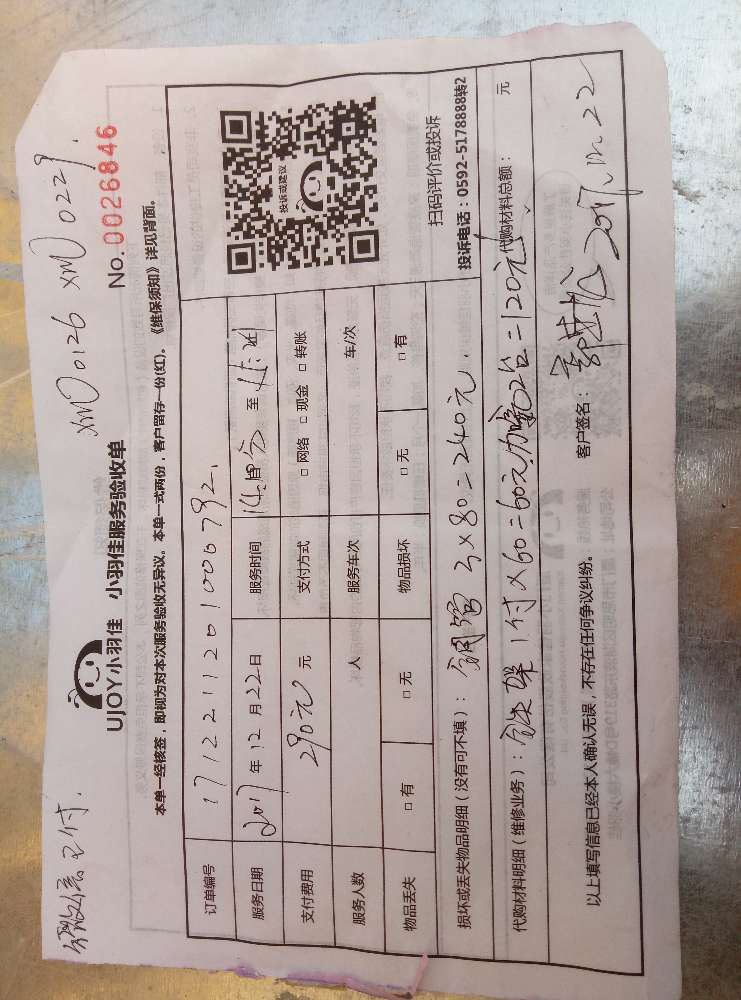 微信已付.
XM0126 XM0229.
UJOY小羽佳 小羽佳服务验收单
No. 0026846
本单一经核签，即视为对本次服务验收无异议。本单一式两份，客户留存一份(红)。《维保须知》详见背面。
订单编号 1712211201006792.
投诉或建议
服务日期 2017 年 12 月 22 日 服务时间 至
支付费用 290元 元 支付方式 □ 网络 □ 现金 □ 转账
服务人数 人 服务车次 车/次
物品丢失 □ 有 □ 无 物品损坏 □ 无 □ 有
扫码评价或投诉
投诉电话：0592-5178888转2
损坏或丢失物品明细（没有可不填）：铜管 3×80=240元.
代购材料明细（维修业务）： 1付×60=60元 2台=120元 代购材料总额： 元
以上填写信息已经本人确认无误，不存在任何争议纠纷。
客户签名： 2017.12.22